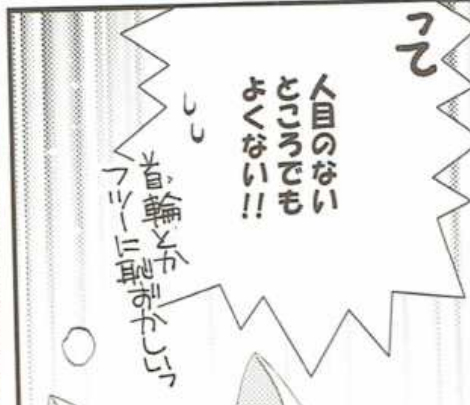 って
人目のない
ところでも
よくない!!
首輪とか
フツーに恥ずかしいっ